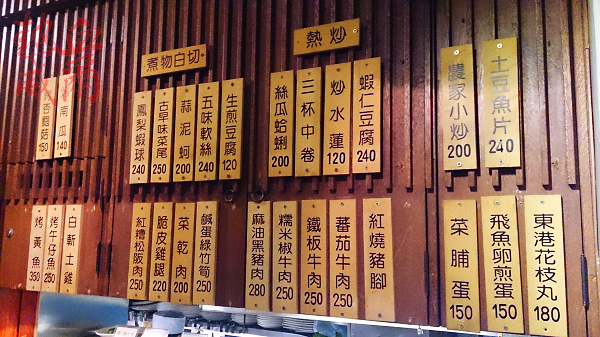 煮物白切
熱炒
杏鮑菇 150
南瓜 140
鳳梨蝦球 240
古早味菜尾 250
蒜泥蚵 200
五味軟絲 240
生煎豆腐 120
絲瓜蛤蜊 200
三杯中卷
炒水蓮 120
蝦仁豆腐 240
農家小炒 200
土豆魚片 240
烤黃魚 350
烤午仔魚 250
白斬土雞
紅糟松阪肉 250
脆皮雞腿 220
菜乾肉 200
鹹蛋綠竹筍 250
麻油黑豬肉 280
糯米椒牛肉 250
鐵板牛肉 250
蕃茄牛肉 250
紅燒豬腳
菜脯蛋 150
飛魚卵煎蛋 150
東港花枝丸 180